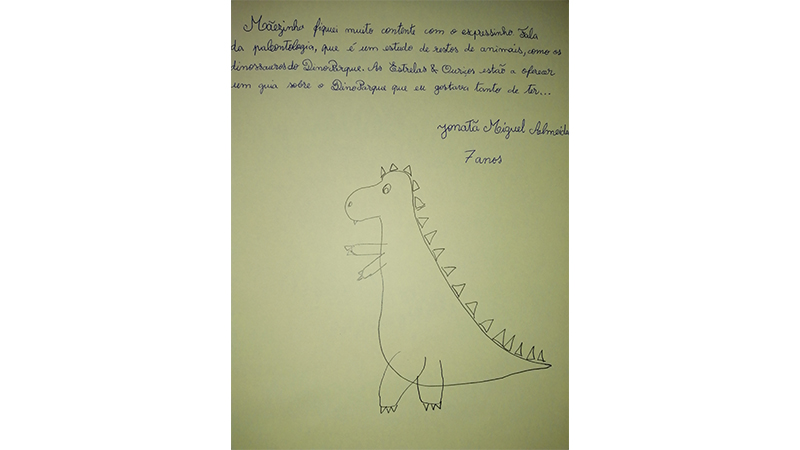 Mãezinha fiquei muito contente com o expressinho fala
da paleontologia, que é um estudo de restos de animais, como os
dinossauros do DinoParque. As Estrelas & Ouriços estão a oferecer
um guia sobre o DinoParque que eu gostava tanto de ter...
Jonatã Miguel Almeida
7 anos